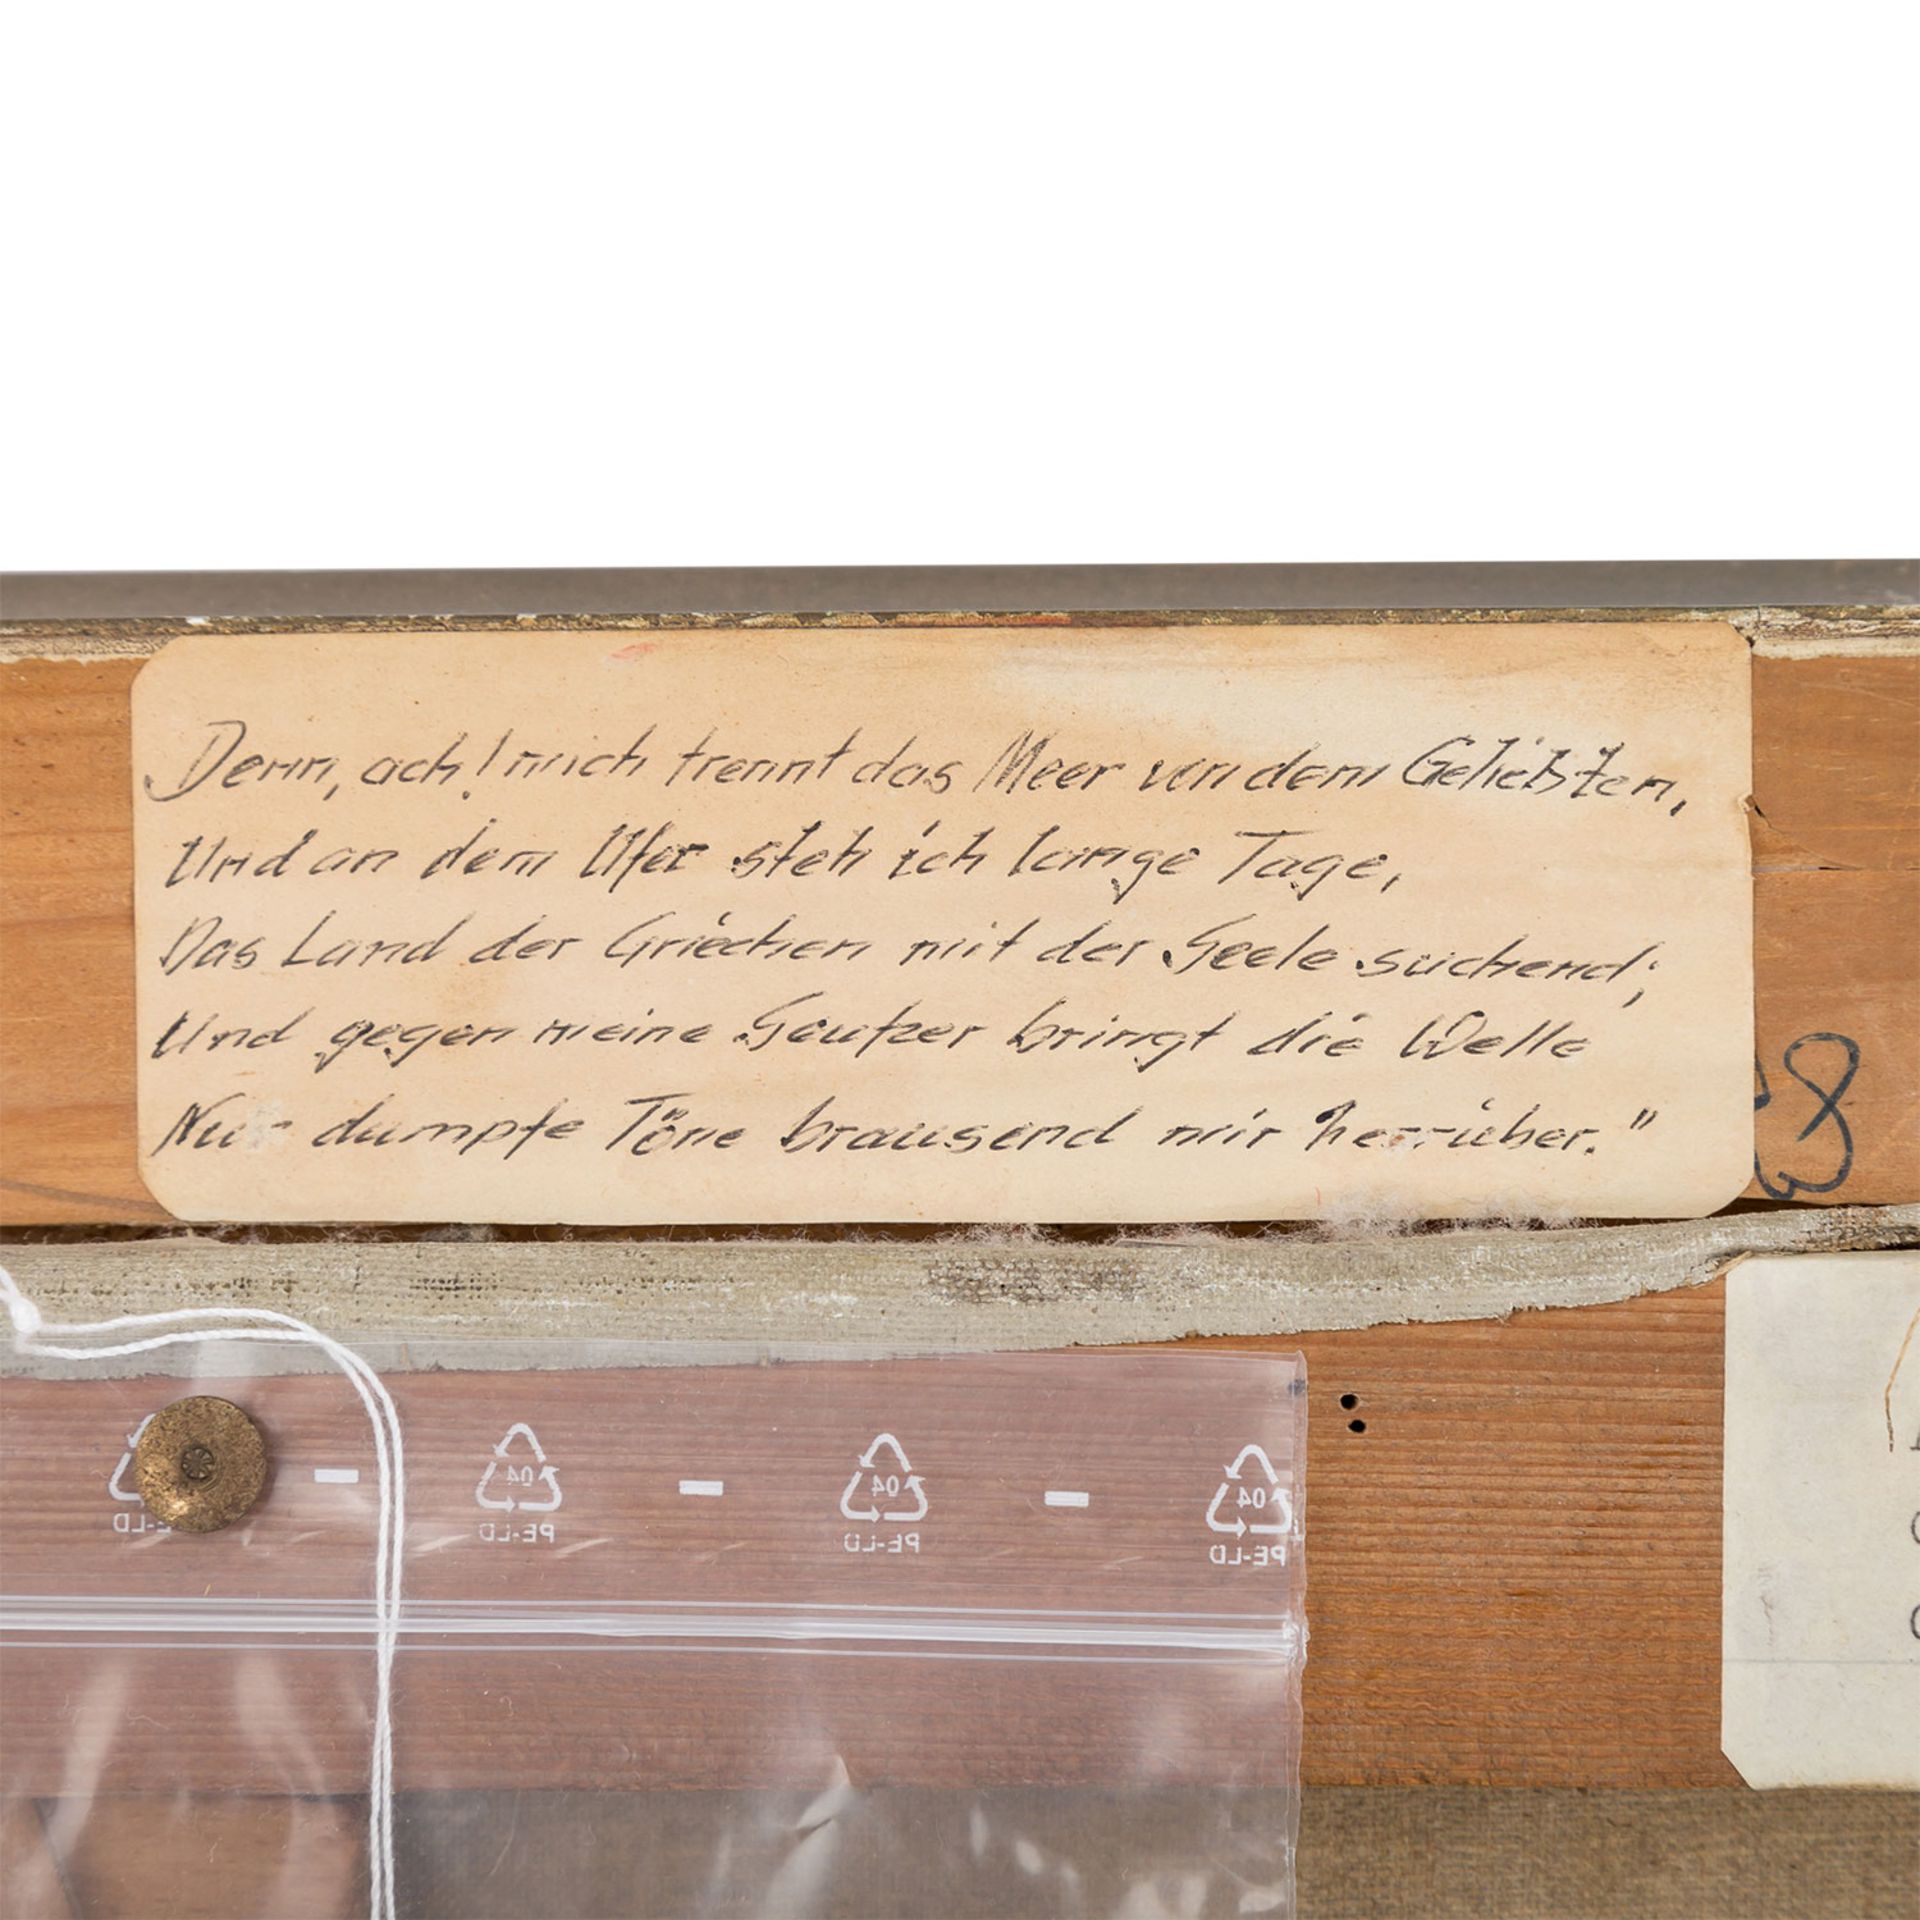 Denn, ach! mich trennt das Meer von dem Geliebten,
Und an dem Ufer steh ich lange Tage,
Das Land der Griechen mit der Seele suchend;
Und gegen meine Seufzer bringt die Welle
Nur dumpfe Töne brausend mir herüber."
04 04 04
PE-LD PE-LD PE-LD PE-LD